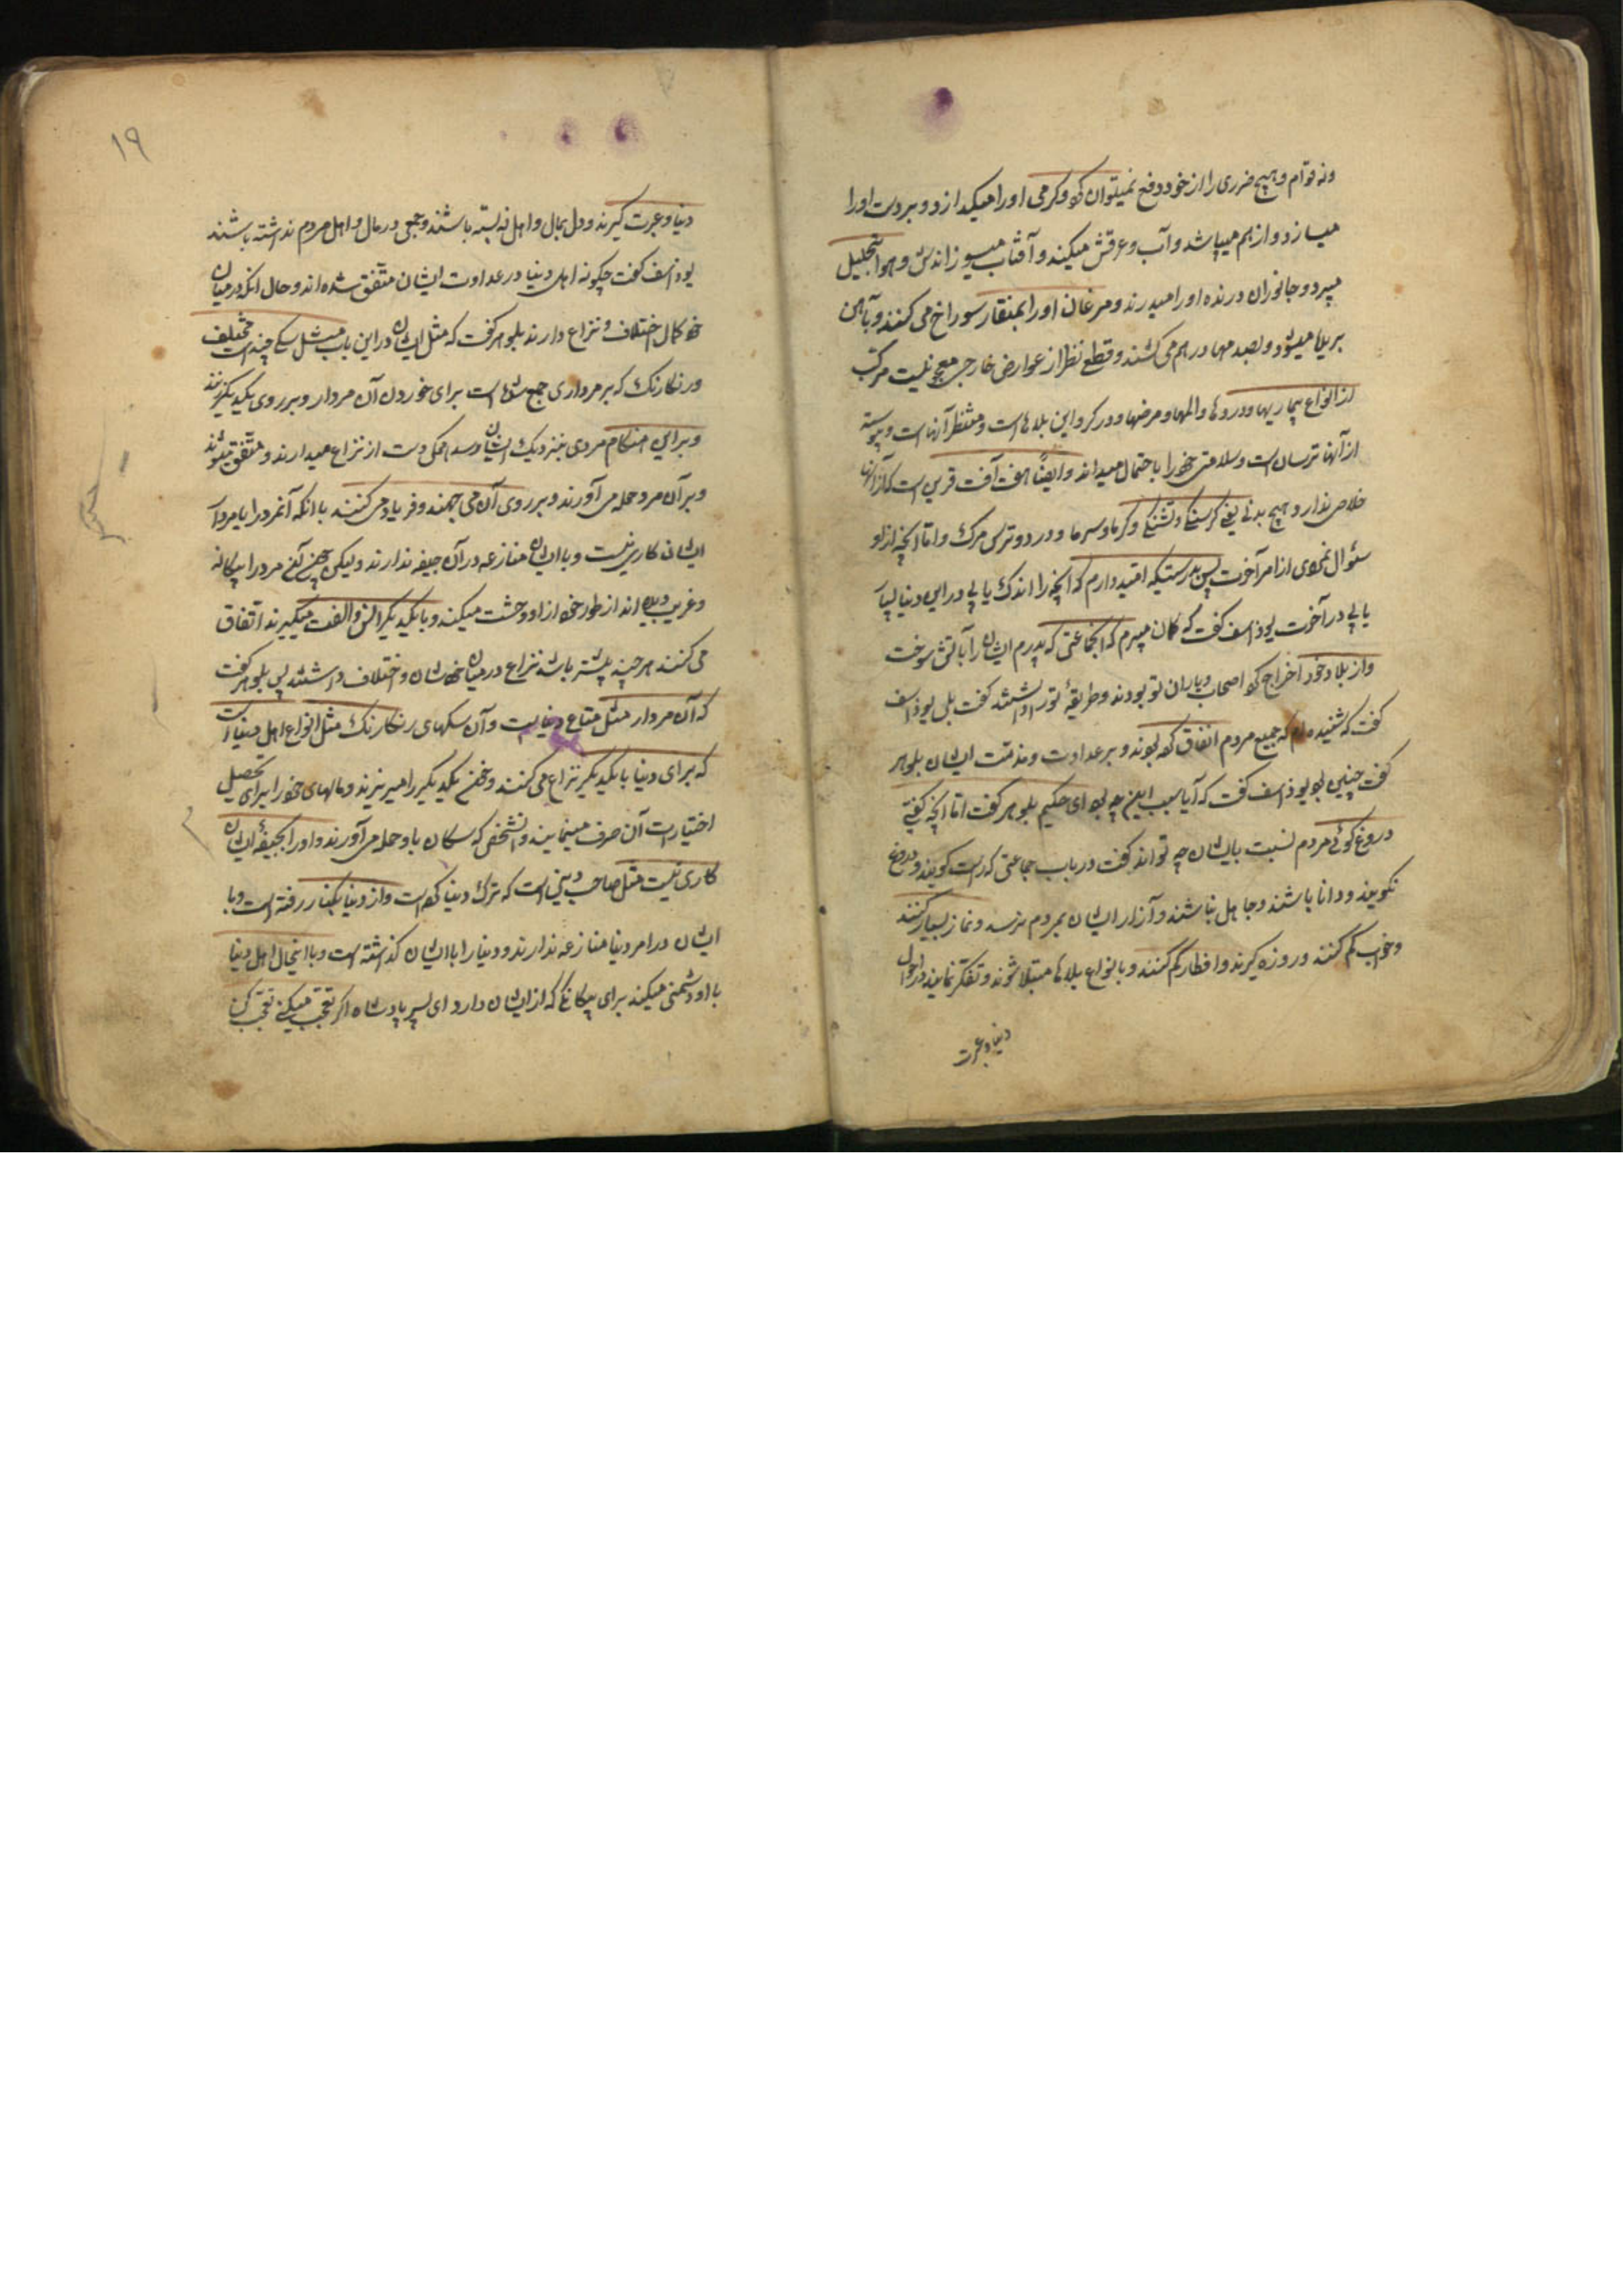 ونه قوام وهیچ ضرری را از خود دفع نمیتوان کرد وگرمی او را میگدازد وبرودت او را
میسازد واز هم میپاشد وآب وغرقش میکند وآفتاب میسوزاندش وهوا بتحلیل
میبرد وجانوران درنده او را میدرند ومرغان او را بمنقار سوراخ می کنند وبآهن
بریده میشود وبصدمها در هم می شکند وقطع نظر از عوارض خارجی معجونیست مرکب
از انواع بیماریها ودردها والمها ومرضها ودر گرو این بلاهاست ومنتظر آنهاست وپیوسته
از آنها ترسان است وسلامتی خود را باحتمال میداند وایضًا هفت آفت قرین است که از آنها
خلاصی ندارد هیچ بدنی یعنی گرسنگی وتشنگی وگرما وسرما ودرد وترس ومرگ واما آنچه از او
سئوال نمودی از امر آخرت پس بدرستیکه امید دارم که آنچه را اندک یابی در این دنیا بسیار
یابی در آخرت یوذاسف گفت که گمان میبرم که آنجماعتی که پدرم ایشان را بآتش سوخت
واز بلاد خود اخراج کرد اصحاب ویاران تو بودند وطریقهٔ تو را داشتند گفت بلی یوذاسف
گفت که شنیده‌ام که جمیع مردم اتفاق کرده بودند بر عداوت ومذمت ایشان بلوهر
گفت چنین بود یوذاسف گفت که آیا سبب این چه بود ای حکیم بلوهر گفت اما آنچه گفتی
دروغ گوئی مردم نسبت بایشان چه تواند گفت در باب جماعتی که راست گویند ودروغ
نگویند ودانا باشند وجاهل نباشند وآزار ایشان بمردم نرسد ونماز بسیار کنند
وخواب کم کنند وروزه گیرند وافطار کم کنند وبانواع بلاها مبتلا شوند وتفکر نمایند در احوال
دنیا وعبرت
۱۹
دنیا وعبرت گیرند ودل بمال واهل نه بسته باشند وطمعی در مال واهل مردم نداشته باشند
یوذاسف گفت چگونه اهل دنیا در عداوت ایشان متّفق شده‌اند وحال آنکه در میان
خود کمال اختلاف ونزاع دارند بلوهر گفت که مثل ایشان در این باب مثل سگی چند است مختلف
ورنگارنگ که بر مرداری جمع شده‌است برای خوردن آن مردار وبر روی یکدیگر زنند
ودر این هنگام مردی بنزدیک ایشان رسد همگی دست از نزاع میدارند ومتّفق میشوند
وبر آن مرد حمله می آورند وبر روی آن می جهند وفریاد می کنند با آنکه آنمرد را با مردار
ایشان کاری نیست وبا ایشان منازعه در آن جیفه ندارند ولیکن چون آن مرد را بیگانه
وغریب دیده‌اند از طور خود از او وحشت میکنند وبا یکدیگر انس والفت میگیرند واتفاق
می کنند هر چند پیشتر باشد نزاع در میان خودشان واختلاف داشتند پس بلوهر گفت
که آن مردار مثل متاع دنیا است وآن سگهای رنگارنگ مثل انواع اهل دنیا است
که برای دنیا با یکدیگر نزاع می کنند وخون یکدیگر را میریزند ومالهای خود را برای تحصیل
اختیارات آن صرف مینمایند وآنشخص که سگان باو حمله می آورند واو را بجیفهٔ ایشان
کاری نیست مثل صاحب دینی است که ترک دنیا کرده است واز دنیا بکنار رفته است وبا
ایشان در امر دنیا منازعه ندارند ودنیا را با ایشان گذاشته است وبا اینحال اهل دنیا
با او دشمنی میکنند برای بیگانگی که از ایشان دارد ای پسر پادشاه اگر تعجّب میکنی تعجّب کن